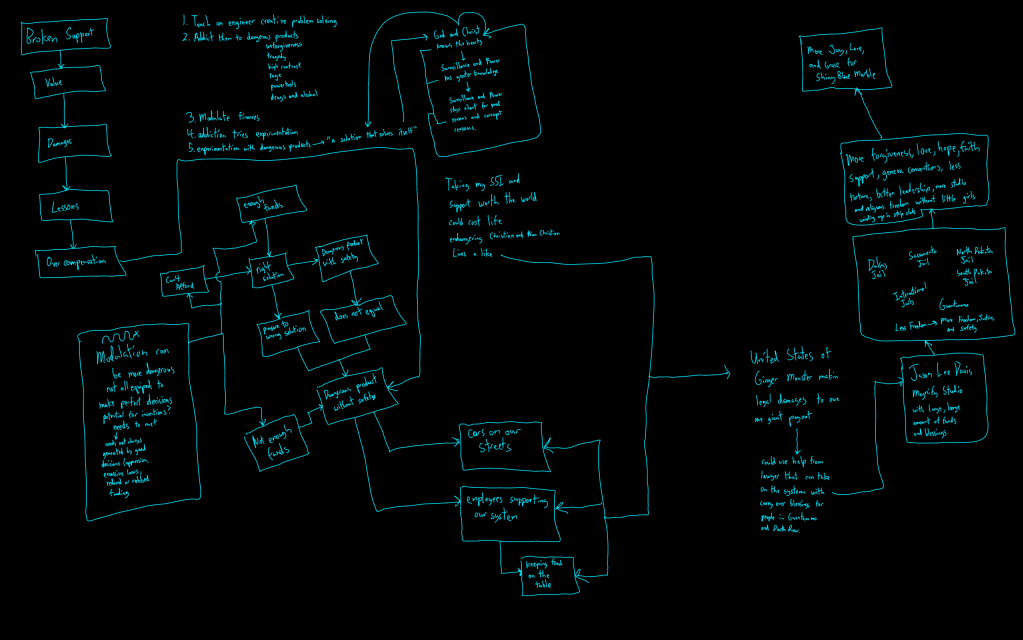 Broken Support
Value
Damages
Lessons
Over compensation
1. Teach an engineer creative problem solving
2. Addict them to dangerous products
unforgiveness
tragedy
high contrast
rage
powerballs
drugs and alcohol
3. Modulate finances
4. addiction tries experimentation
5. experimentation with dangerous products → "a solution that solves itself"
God and Christ
knows the hearts
Surveillance and Power
has greater knowledge
Surveillance and Power
stays silent for good
reasons and corrupt
reasons.
enough
funds
Can't
Afford
right
solution
Dangerous product
with safety
prone to
wrong solution
does not equal
Dangerous product
without safety
Not enough
funds
Modulation can
be more dangerous
not all equiped to
make perfect decisions
potential for inventions?
needs to met
needs not always
generated by good
decisions (oppression,
excessive laws,
reduced or robbed
funding
Taking my SSI and
support worth the world
could cost life
endangering Christian and Non Christian
Lives a like
cars on our
streets
employees supporting
our system
keeping food
on the
table
United States of
Ginger Monster makin
legal damages to owe
me giant payout
could use help from
lawyer that can take
on the systems with
carry over blessings for
people in Guantanamo
and Death Row.
More Jesus, Love,
and Grace for
Shiny Blue Marble
More forgiveness, love, hope, faith
support, geneva conventions, less
torture, better leadership, more studio
and religious freedom without little girls
winding up in strip clubs
Dallas
Jail
Sacramento
Jail
North Dakota
Jail
South Dakota
Jail
International
Jails
Guantanamo
Less Freedom → More Freedom, Justice,
and safety
Jason Lee Davis
Magnify Studio
with large, large
amount of funds
and blessings